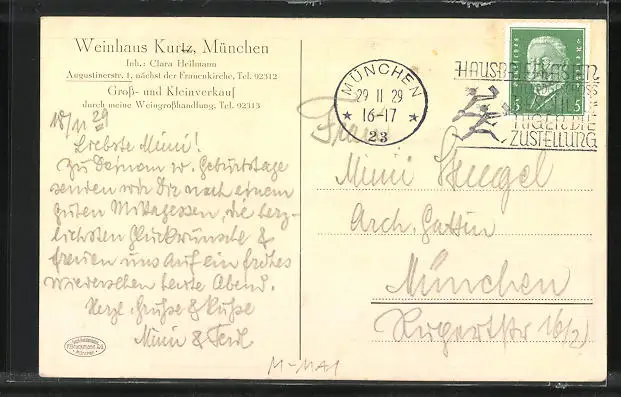 Weinhaus Kurtz, München
Inh.: Clara Heilmann
Augustinerstr. 1, nächst der Frauenkirche, Tel. 92312
Groß- und Kleinverkauf
durch meine Weingroßhandlung, Tel. 92313
18/11 29
Liebste Mimi!
Zu Deinem w. Geburtstage
senden wir Dir nach einem
guten Mittagessen, die herz-
lichsten Glückwünsche &
freuen uns auf ein frohes
Wiedersehen heute Abend.
Herzl. Grüße & Küße
Mimi & Ferdl
MÜNCHEN
29 11 29
16-17
★ ★
23
HAUSBRIEFKASTEN
ZUSTELLUNG
5 5
Frau
Mimi Stugel
Arch. Gattin
München
Rugertstr 16/2
M-MA1